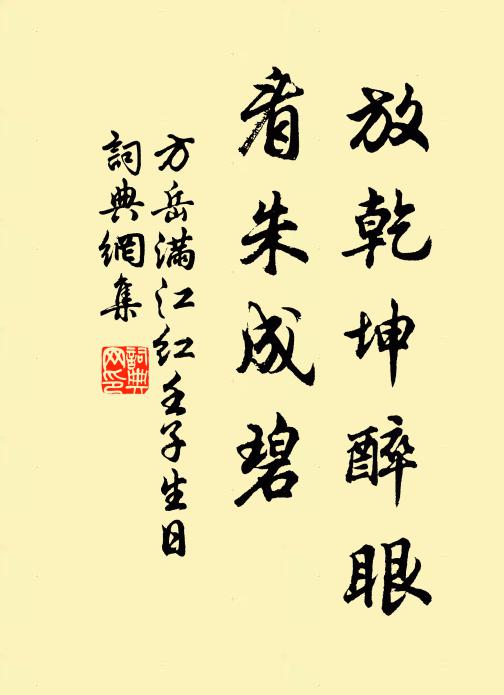 放乾坤醉眼
看朱成碧
方岳滿江紅壬子生日
詞典網集
詞典
网印